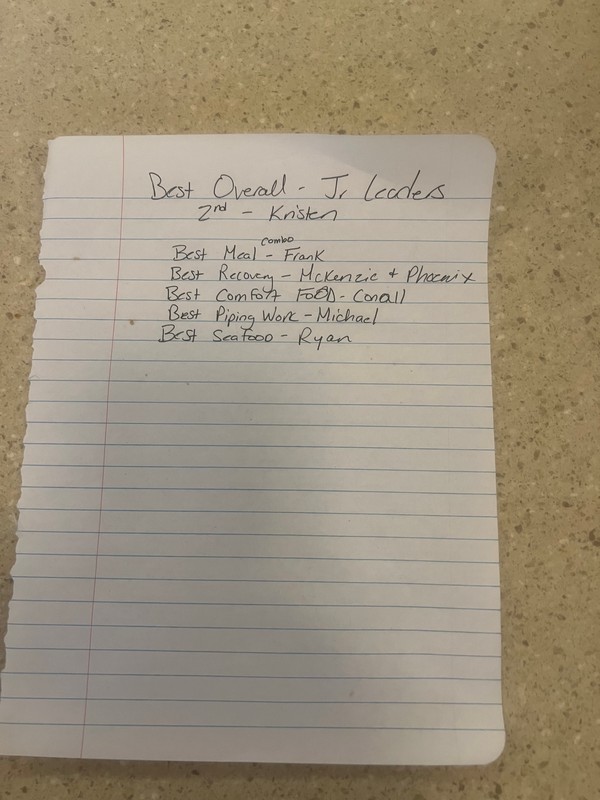 Best Overall - Jr Leaders
2nd - Kristen
combo
Best Meal - Frank
Best Recovery - McKenzie + Phoenix
Best Comfort FOOD - Conall
Best Piping Work - Michael
Best Seafood - Ryan